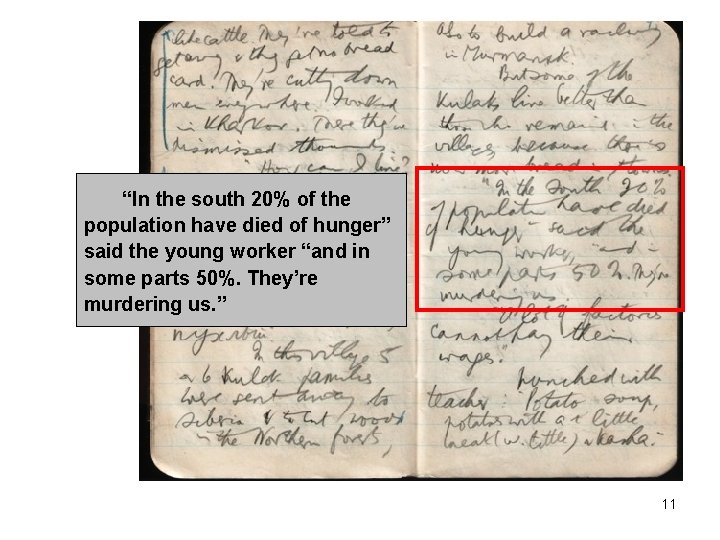 like cattle. They're told to
get away & they get no bread
card. They're cutting down
men everywhere. I worked
in Kharkov. There they've
dismissed thousands.
"How can I live?
In this village 5
or 6 Kulak families
were sent away to
Siberia & to cut wood
in the Northern forests,
also to build a railway
in Murmansk.
But some of the
Kulaks live better than
those who remain in the
village, because there's
now more bread in towns.
"In the South 20%
of population have died
of hunger" said the
young worker, "and in
some parts 50%. They're
murdering us."
"A lot of factories
cannot pay their
wages."
Lunched with
teacher: Potato soup,
potatoes with a little
meat (v. little) & kasha.
“In the south 20% of the
population have died of hunger”
said the young worker “and in
some parts 50%. They’re
murdering us. ”
11